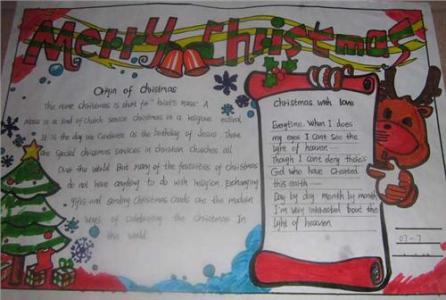 Merry Christmas
Origin of Christmas
The name christmas is short for "Christ's mass". A
Mass is a kind of Church service Christmas is a religious
It is the day we Celebrate as the birthday of Jesus. There
are Special christmas services in christian Churches all
Over the world. But many of the festivities of christmas
do not have anything to do with religion. Exchanging
gifts and sending Christmas Cards are the modern
Ways of Celebrating the Christmas In
the world.
Christmas with love
Everytime. When I does
my eyes I Cant See the
light of heaven
Though I cant deny
God who have Created
this earth
Day by day month by month
I'm very interested bout the
light of heaven
07-7